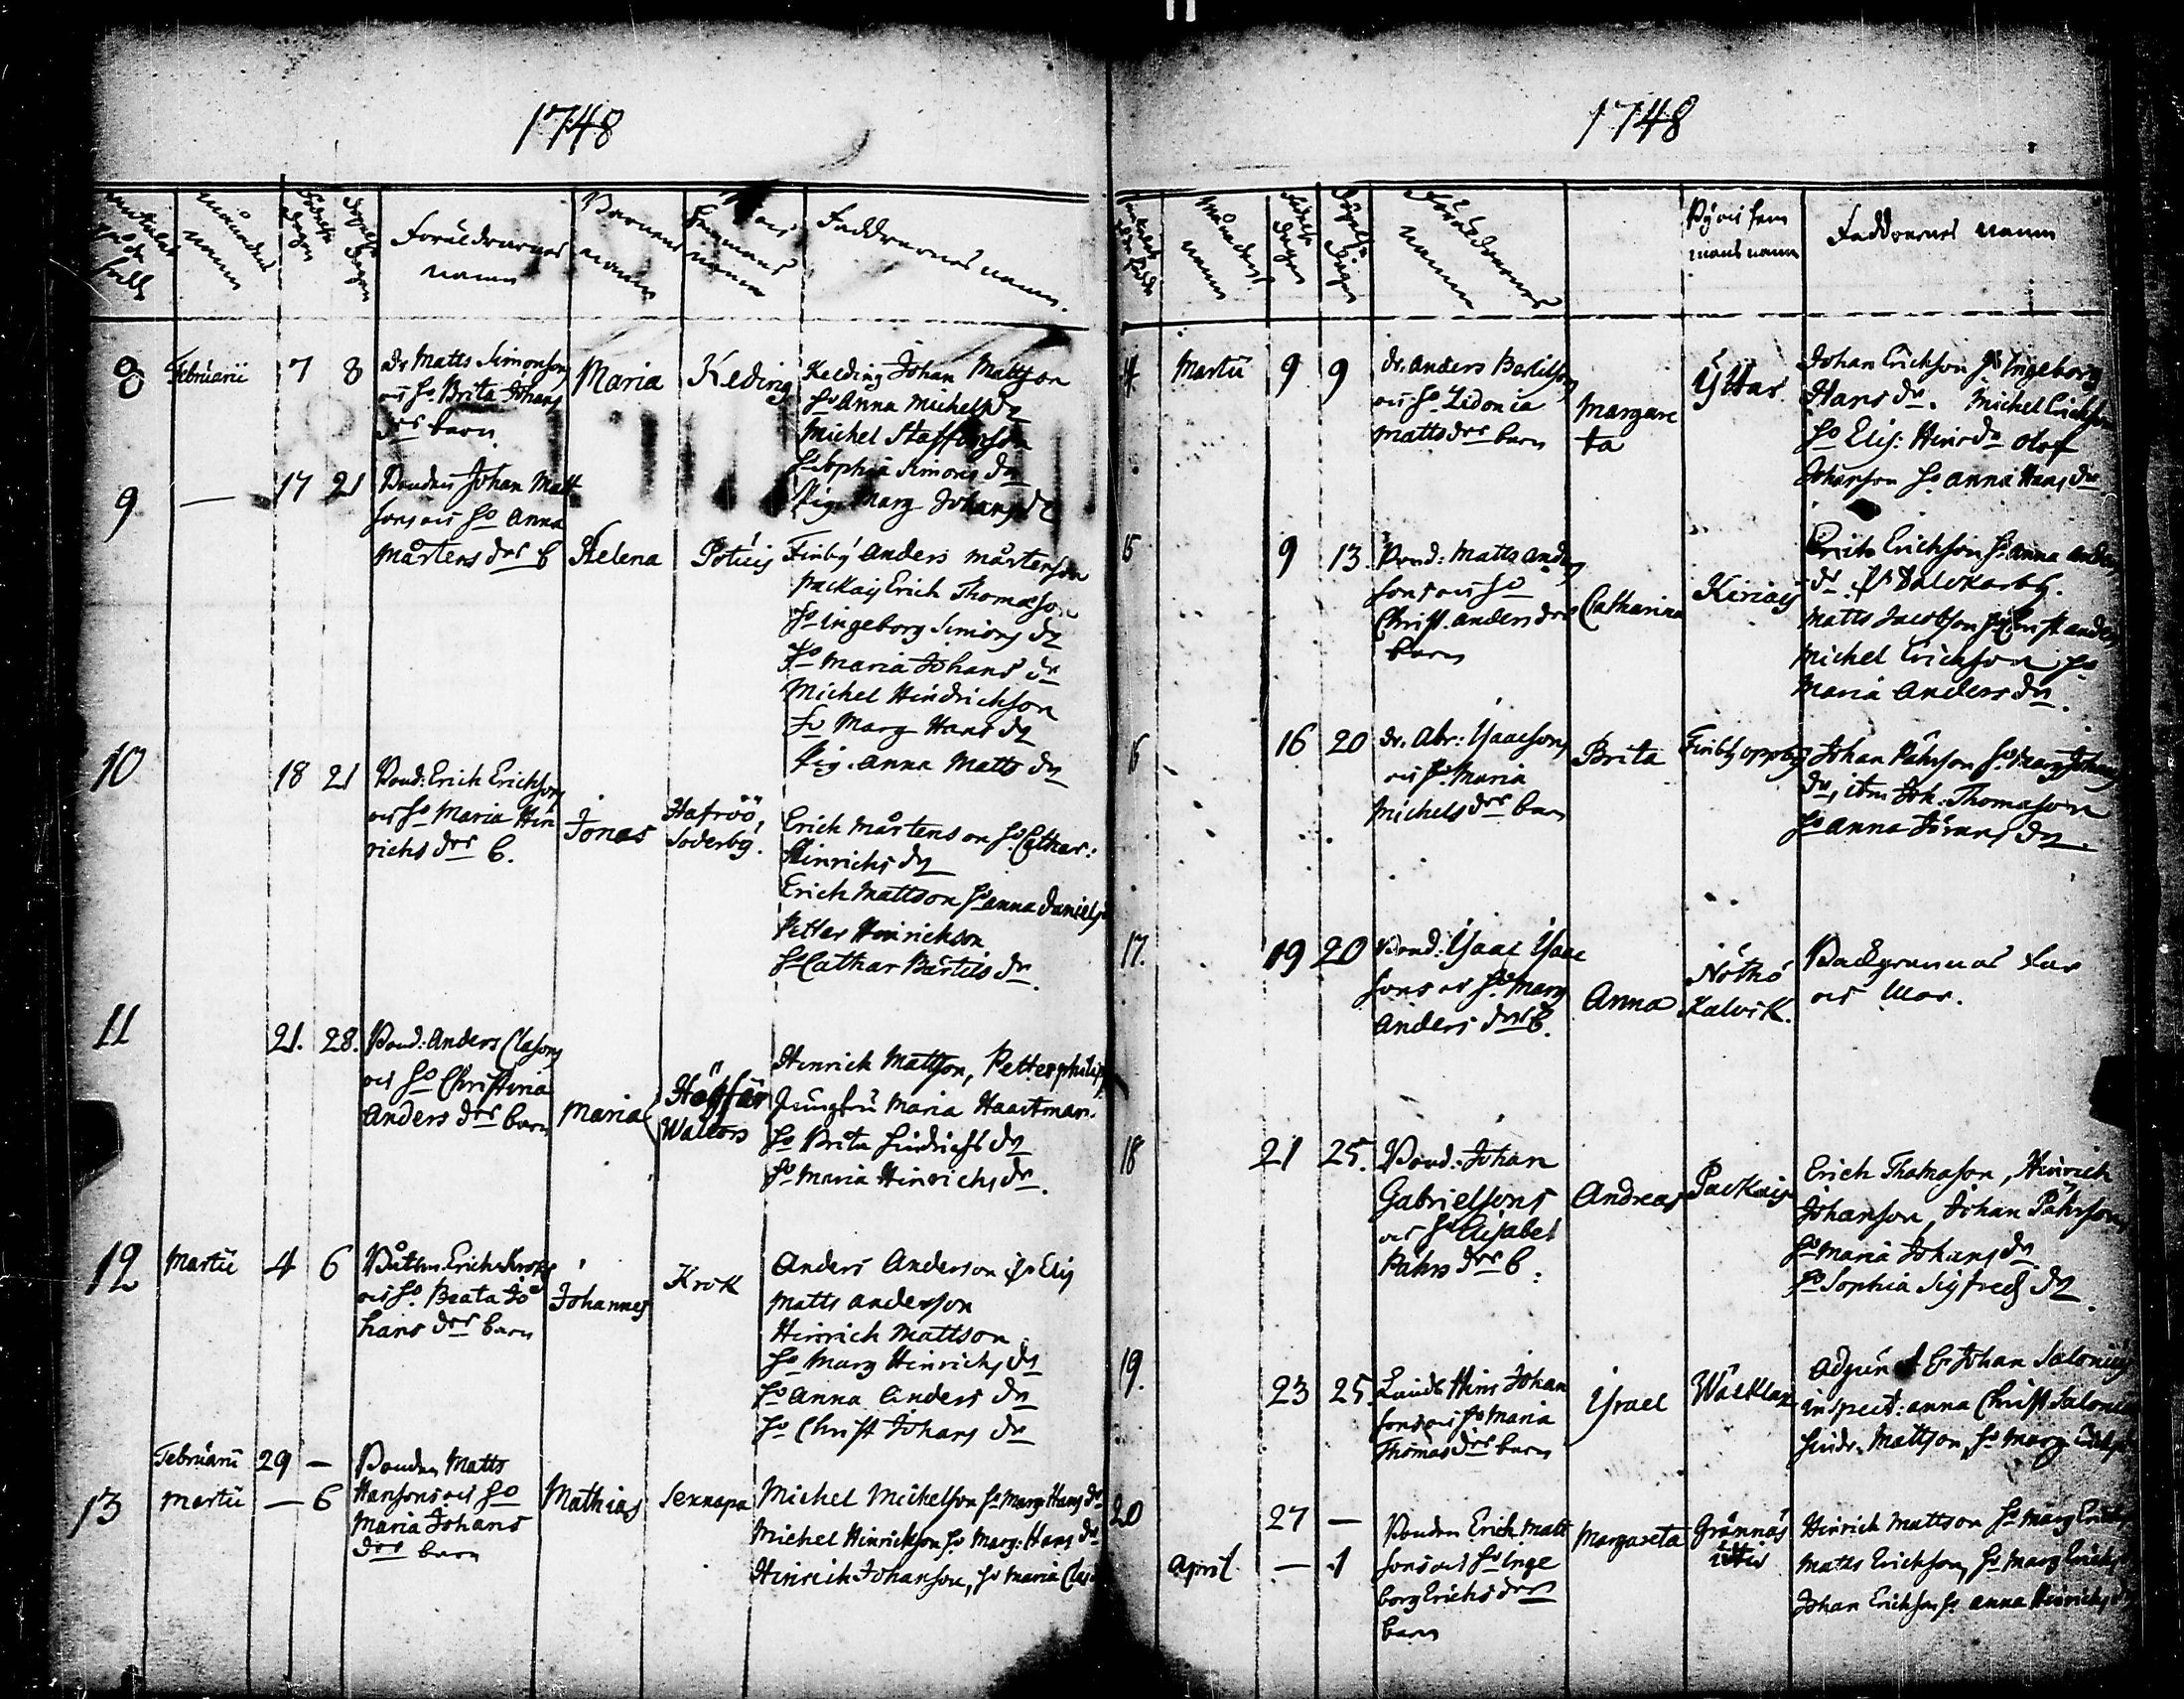 1748
Månadens
namn
Födelse
dagen
Föräldrarnas
namn
Barnens
namn
Faddrarnas namn.
8 Februarii 7 8
dr. Matts Simonsons
och h:o Brita Johans
d:rs barn
Maria
Keding
Keding Johan Mattson
h:o Anna Michels d:r
Michel Staffanson
h:o Sophia Simons d:r
Pig. Marg Johans d:r
9 — 17 21
Bonden Johan Matt
sons och h:o Anna
Mårtens d:rs b
Helena
Finby Anders Mårtenson
Packais Erich Thomason
h:o Ingeborg Simons d:r
h:o Maria Johans d:r
Michel Hindrichson
h:o Marg Hans d:r
Pig. Anna Matts d:r
10 18 21
Bond: Erich Erichsons
och h:o Maria Hin
richs d:rs b.
Jonas
Söderby.
Erich Mårtenson h:o Cathar:
Hinrichs d:r
Erich Mattson h:o Anna Daniels
Petter Hinrichson
h:o Cathar Bärtils d:r.
11 21. 28.
Bond: Anders Clasons
och h:o Christina
Anders d:rs barn
Maria
Högsar
Wallors
Hinrich Mattson, Petter Philips
Jungfru Maria Haartman.
h:o Brita Hindrichs d:r
h:o Maria Hinrichs d:r.
12 Martii 4 6
Båtsm. Erich Kroks
och h:o Beata Jo
hans d:rs barn
Johannes
Krok
Anders Anderson h:o Elis
Matts Anderson
Hinrich Mattson
h:o Marg Hinrichs d:r
h:o Anna Anders d:r
h:o Christ Johans d:r
Februarii 29 —
13 Martii — 6
Bonden Matts
Hansons och h:o
Maria Johans
d:rs barn
Mathias
Sexnapa
Michel Michelson h:o Marg: Hans d:r
Michel Hinrichson h:o Marg: Hans d:r
Hinrich Johanson, h:o Maria Clas
1748
Månadens
namn
Födelse
dagen
Föräldrarnas
namn
Byens hem
mans namn
Faddrarnas namn
14 Martii 9 9
dr. Anders Bertilsons
och h:o Zidonia
Matts d:rs barn
Margare
ta
Yttar
Johan Erichson h:o Ingeborg
Hans d:r. Michel Erichson
h:o Elis: Hinr d:r Olof
Johanson h:o Anna Hans d:r
15 9 13.
Bond: Matts Anders
sons och h:o
Christ. Anders d:rs
barn
Catharina
Kiriais
Erich Erichson h:o Anna Anders
d:r. fr. Dalckarby.
Matts Jacobson h:o Christ Anders
Michel Erichson h:o
Maria Anders d:r.
16 16 20
dr. Abr: Ysaacsons
och h:o Maria
Michels d:rs barn
Brita
Finby oppeby
Johan Påhrson h:o Marg Johans
d:r, item Joh. Thomason
h:o Anna Jörans d:r.
17. 19 20
Bond: Ysaac Ysaac
sons och h:o Marg
Anders d:rs b.
Anna
Nöthö
Kalvik.
Badgrannas far
och Mor.
18 21 25.
Bond: Johan
Gabrielsons
och h:o Elisabet
Påhrs d:rs b.
Andreas
Packais
Erich Thomason, Hinrich
Johanson, Johan Påhrson,
h:o Maria Johans d:r
h:o Sophia Sigfreds d:r.
19. 23 25.
Landb. Hinr Johan
sons och h:o Maria
Thomas d:rs barn
Ysrael
Wäcklax
Adjunct Er Johan Salonius
inspect: Anna Christ Salonia
Hindr. Mattson, h:o Marg
20 27 —
April — 1
Bonden Erich Matt
sons och h:o Inge
borg Erichs d:rs
barn
Margareta
Grännäs
Hinrich Mattson h:o Marg Erichs
Matts Erichson, h:o Marg Erichs
Johan Erichson h:o Anna Hinrichs d:r